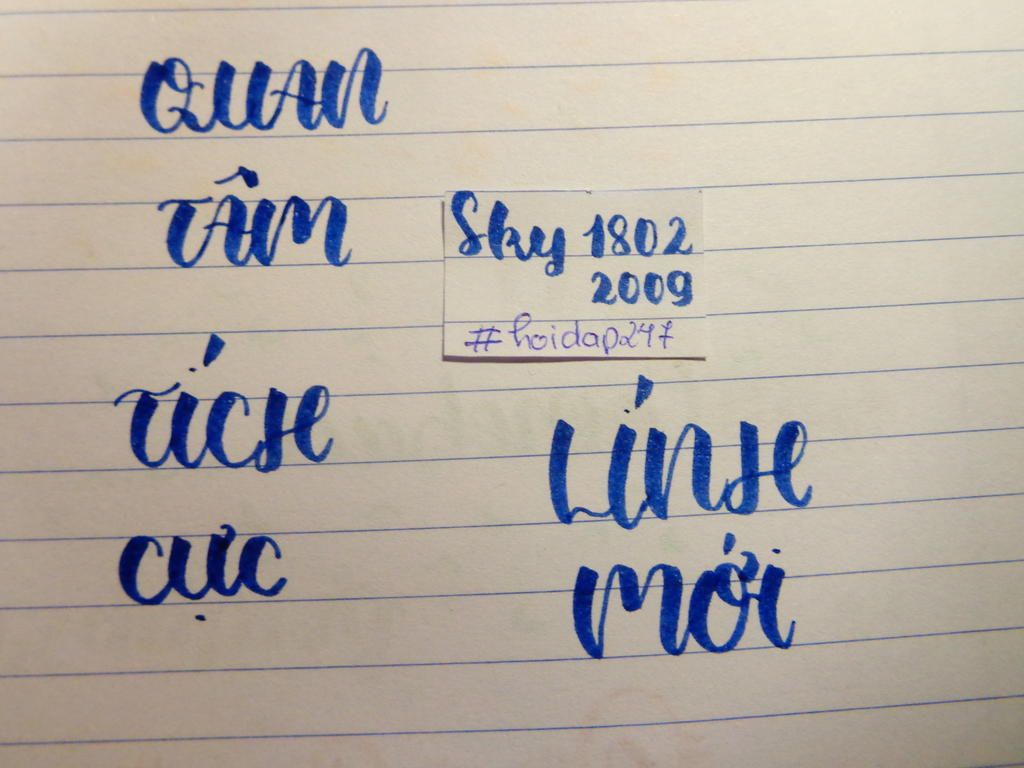 QUAN
TÂM
Sky 1802
2009
#hoidap247
TÍCH
CỰC
LÍNH
MỚI